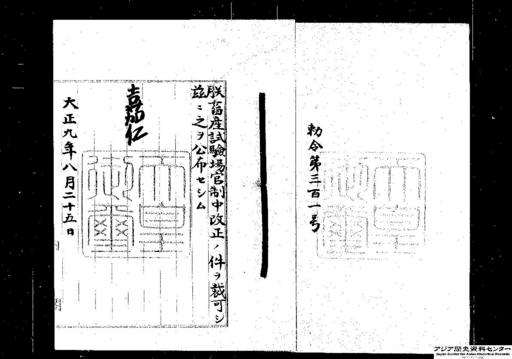 勅令第三百一号
朕畜産試験場官制中改正ノ件ヲ裁可シ
茲ニ之ヲ公布セシム
嘉仁
大正九年八月二十五日
天皇
御璽
アジア歴史資料センター
Japan Center for Asian Historical Records